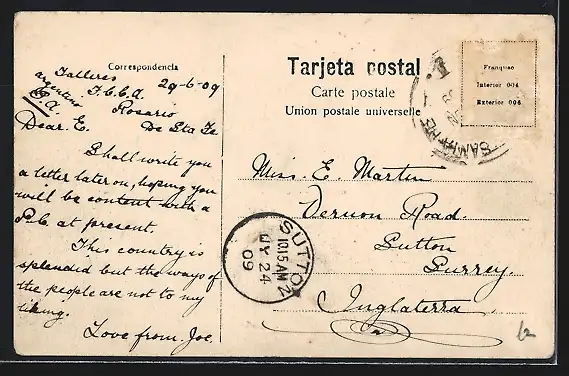 Correspondencia
Talleres 29-6-09
F.C.C.A.
argentino
S.A.
Rosario
De Sta Fe
Dear. E.
Shall write you
a letter later on, hoping you
will be content with a
P.C. at present.
This country is
splendid but the ways of
the people are not to my
liking.
Love from Joe.
Tarjeta postal
Carte postale
Union postale universelle
Franqueo
Interior 004
Exterior 006
Miss. E. Martin
Vernon Road.
Sutton
Surrey.
Inglaterra
SUTTON
10.15 AM
JY 24
09